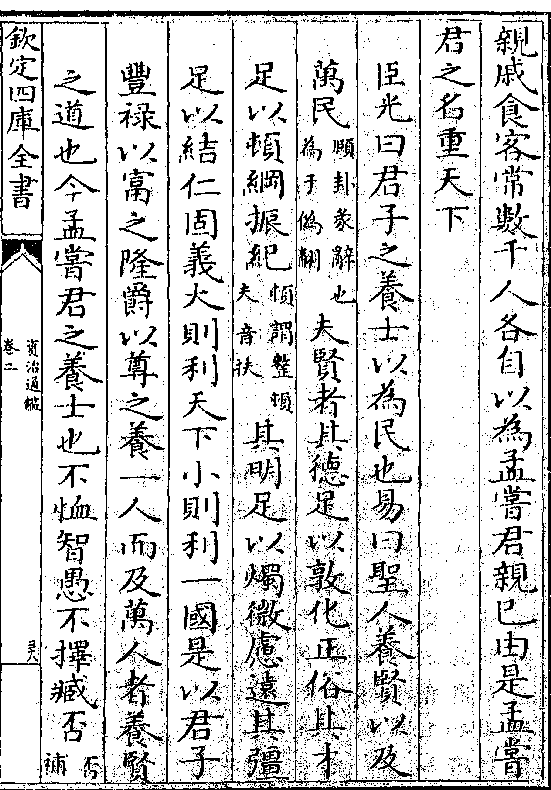 親戚食客常數千人各自以為孟嘗君親已由是孟嘗
君之名重天下
臣光曰君子之養士以為民也易曰聖人養賢以及
萬民頤卦彖辭也為于偽翻夫賢者其德足以敦化正俗其才
足以頓綱振紀頓謂整頓夫音扶其明足以燭微慮遠其彊
足以結仁固義大則利天下小則利一國是以君子
豐祿以富之隆爵以尊之養一人而及萬人者養賢
之道也今孟嘗君之養士也不恤智愚不擇臧否否補
欽定四庫全書
資治通鑑
卷二